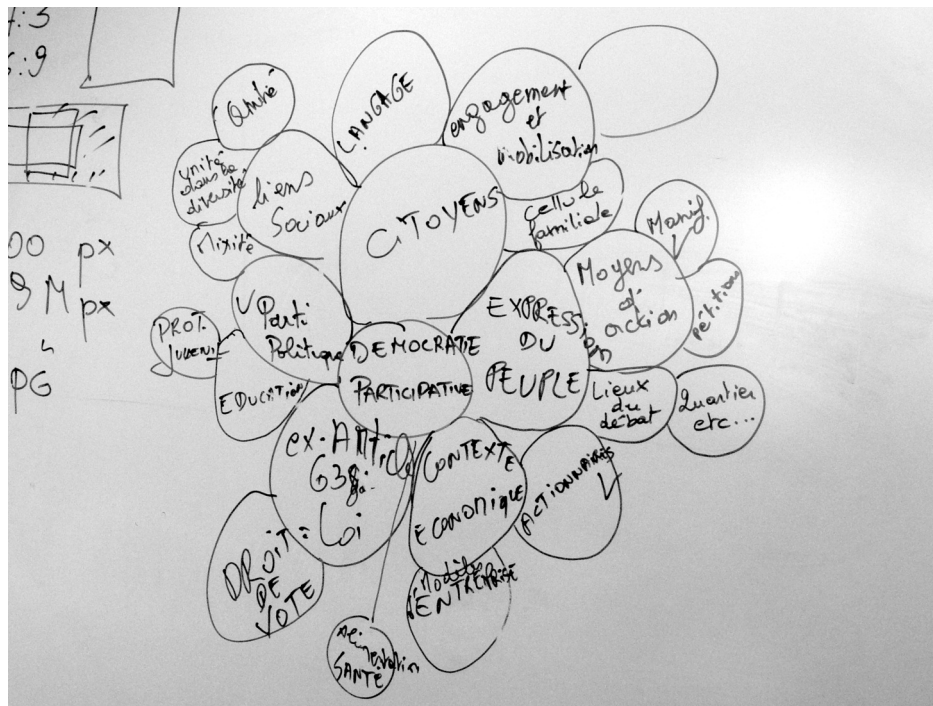 4:3
:9
00 px
9 Mpx
PG
Amitié
LANGAGE
engagement
et
mobilisation
unité
dans la
diversité
liens
Sociaux
Mixité
CITOYENS
cellule
familiale
Manif.
Moyens
d'
action
pétitions
PROT.
Parti
Politique
EDUCATION
DEMOCRATIE
PARTICIPATIVE
EXPRESSION
DU
PEUPLE
Lieux
du
débat
Quartier
etc...
ex. Article
638
Loi
CONTEXTE
ECONOMIQUE
ACTIONNAIRES
DROIT
DE
VOTE
Modèle
ENTREPRISE
SANTE